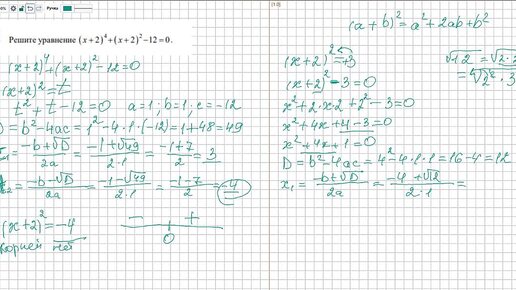 Ручка
Решите уравнение (x + 2)⁴ + (x + 2)² − 12 = 0.
(x+2)⁴+(x+2)²−12=0
(x+2)²=t
t²+t−12=0 a=1; b=1; c=−12
D=b²−4ac=1²−4·1·(−12)=1+48=49
=(−b+√D)/2a=(−1+√49)/2·1=(−1+7)/2=3
=(−b−√D)/2a=(−1−√49)/2·1=(−1−7)/2=−4
(x+2)²=−4
корней нет
− +
0
(10)
(a+b)²=a²+2ab+b²
(x+2)²=+3
(x+2)²−3=0
x²+2·x2+2²−3=0
x²+4x+4−3=0
x²+4x+1=0
D=b²−4ac=4²−4·1·1=16−4=12
x₁=(−b+√D)/2a=(−4+√12)/2·1=
√12=√2·2
=√2²·3